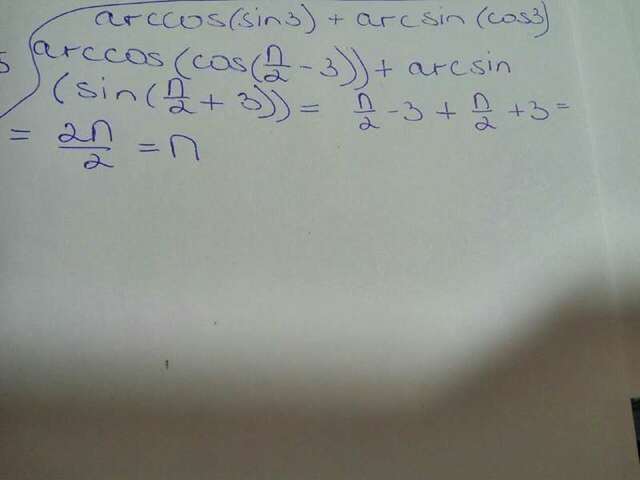 arccos(sin3) + arcsin(cos3)
5 arccos(cos(π/2 - 3)) + arcsin
(sin(π/2 + 3)) = π/2 - 3 + π/2 + 3 =
= 2π/2 = π